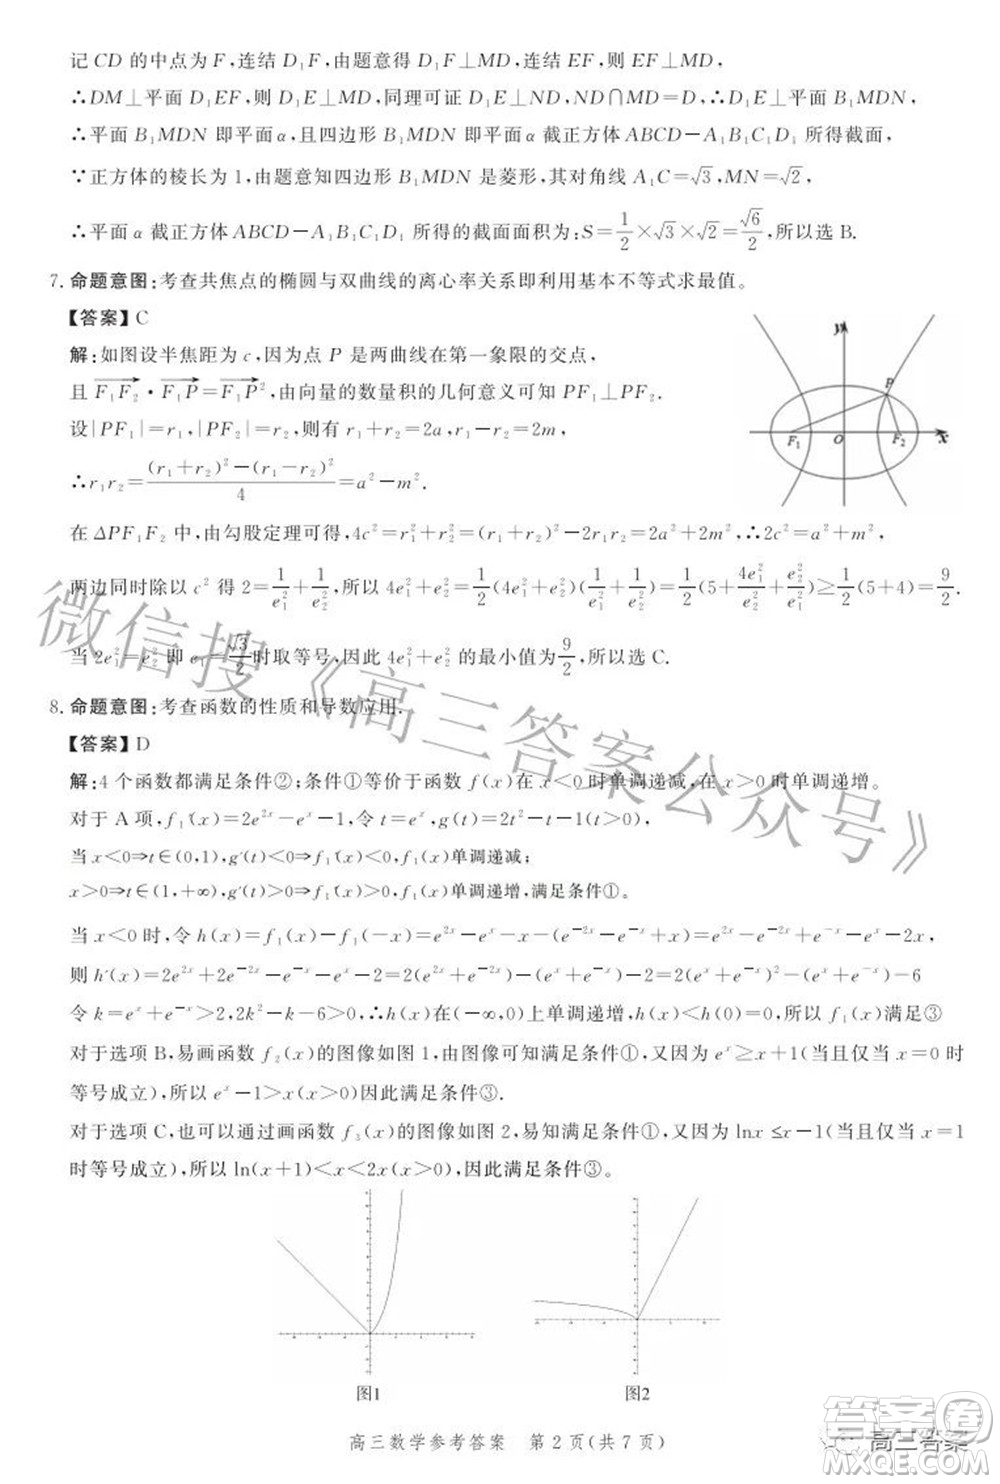 记CD的中点为F,连结D₁F,由题意得D₁F⊥MD,连结EF,则EF⊥MD,
∴DM⊥平面D₁EF,则D₁E⊥MD,同理可证D₁E⊥ND,ND∩MD=D,∴D₁E⊥平面B₁MDN,
∴平面B₁MDN即平面α,且四边形B₁MDN即平面α截正方体ABCD-A₁B₁C₁D₁所得截面,
∵正方体的棱长为1,由题意知四边形B₁MDN是菱形,其对角线A₁C=√3,MN=√2,
∴平面α截正方体ABCD-A₁B₁C₁D₁所得的截面面积为:S=1/2×√3×√2=√6/2,所以选B.
7.命题意图:考查共焦点的椭圆与双曲线的离心率关系即利用基本不等式求最值。
【答案】C
解:如图设半焦距为c,因为点P是两曲线在第一象限的交点,
且F₁F₂·F₁P=F₁P²,由向量的数量积的几何意义可知PF₁⊥PF₂.
设|PF₁|=r₁,|PF₂|=r₂,则有r₁+r₂=2a,r₁-r₂=2m,
∴r₁r₂=((r₁+r₂)²-(r₁-r₂)²)/4=a²-m².
在ΔPF₁F₂中,由勾股定理可得,4c²=r₁²+r₂²=(r₁+r₂)²-2r₁r₂=2a²+2m²,∴2c²=a²+m²,
两边同时除以c²得2=1/e₁²+1/e₂²,所以4e₁²+e₂²=1/2(4e₁²+e₂²)(1/e₁²+1/e₂²)=1/2(5+4e₁²/e₂²+e₂²/e₁²)≥1/2(5+4)=9/2.
当2e₁²=e₂²即e=√3/2时取等号,因此4e₁²+e₂²的最小值为9/2,所以选C.
8.命题意图:考查函数的性质和导数应用.
【答案】D
解:4个函数都满足条件②;条件①等价于函数f(x)在x<0时单调递减,在x>0时单调递增。
对于A项,f₁'(x)=2e²ˣ-eˣ-1,令t=eˣ,g(t)=2t²-t-1(t>0),
当x<0⇒t∈(0,1),g'(t)<0⇒f₁'(x)<0,f₁(x)单调递减;
x>0⇒t∈(1,+∞),g'(t)>0⇒f₁'(x)>0,f₁(x)单调递增,满足条件①。
当x<0时,令h(x)=f₁(x)-f₁(-x)=e²ˣ-eˣ-x-(e⁻²ˣ-e⁻ˣ+x)=e²ˣ-e⁻²ˣ+e⁻ˣ-eˣ-2x,
则h'(x)=2e²ˣ+2e⁻²ˣ-e⁻ˣ-eˣ-2=2(eˣ+e⁻ˣ)²-(eˣ+e⁻ˣ)-6
令k=eˣ+e⁻ˣ>2,2k²-k-6>0,∴h(x)在(-∞,0)上单调递增,h(x)<h(0)=0,所以f₁(x)满足③
对于选项B,易画函数f₂(x)的图像如图1,由图像可知满足条件①,又因为eˣ≥x+1(当且仅当x=0时
等号成立),所以eˣ-1>x(x>0)因此满足条件③.
对于选项C,也可以通过画函数f₃(x)的图像如图2,易知满足条件①,又因为lnx≤x-1(当且仅当x=1
时等号成立),所以ln(x+1)<x<2x(x>0),因此满足条件③。
y
P
F₁
O
F₂
x
图1
图2
高三数学参考答案 第2页(共7页)
微信搜《高三答案公众号》
高三答案
答案圈
MXQE.COM